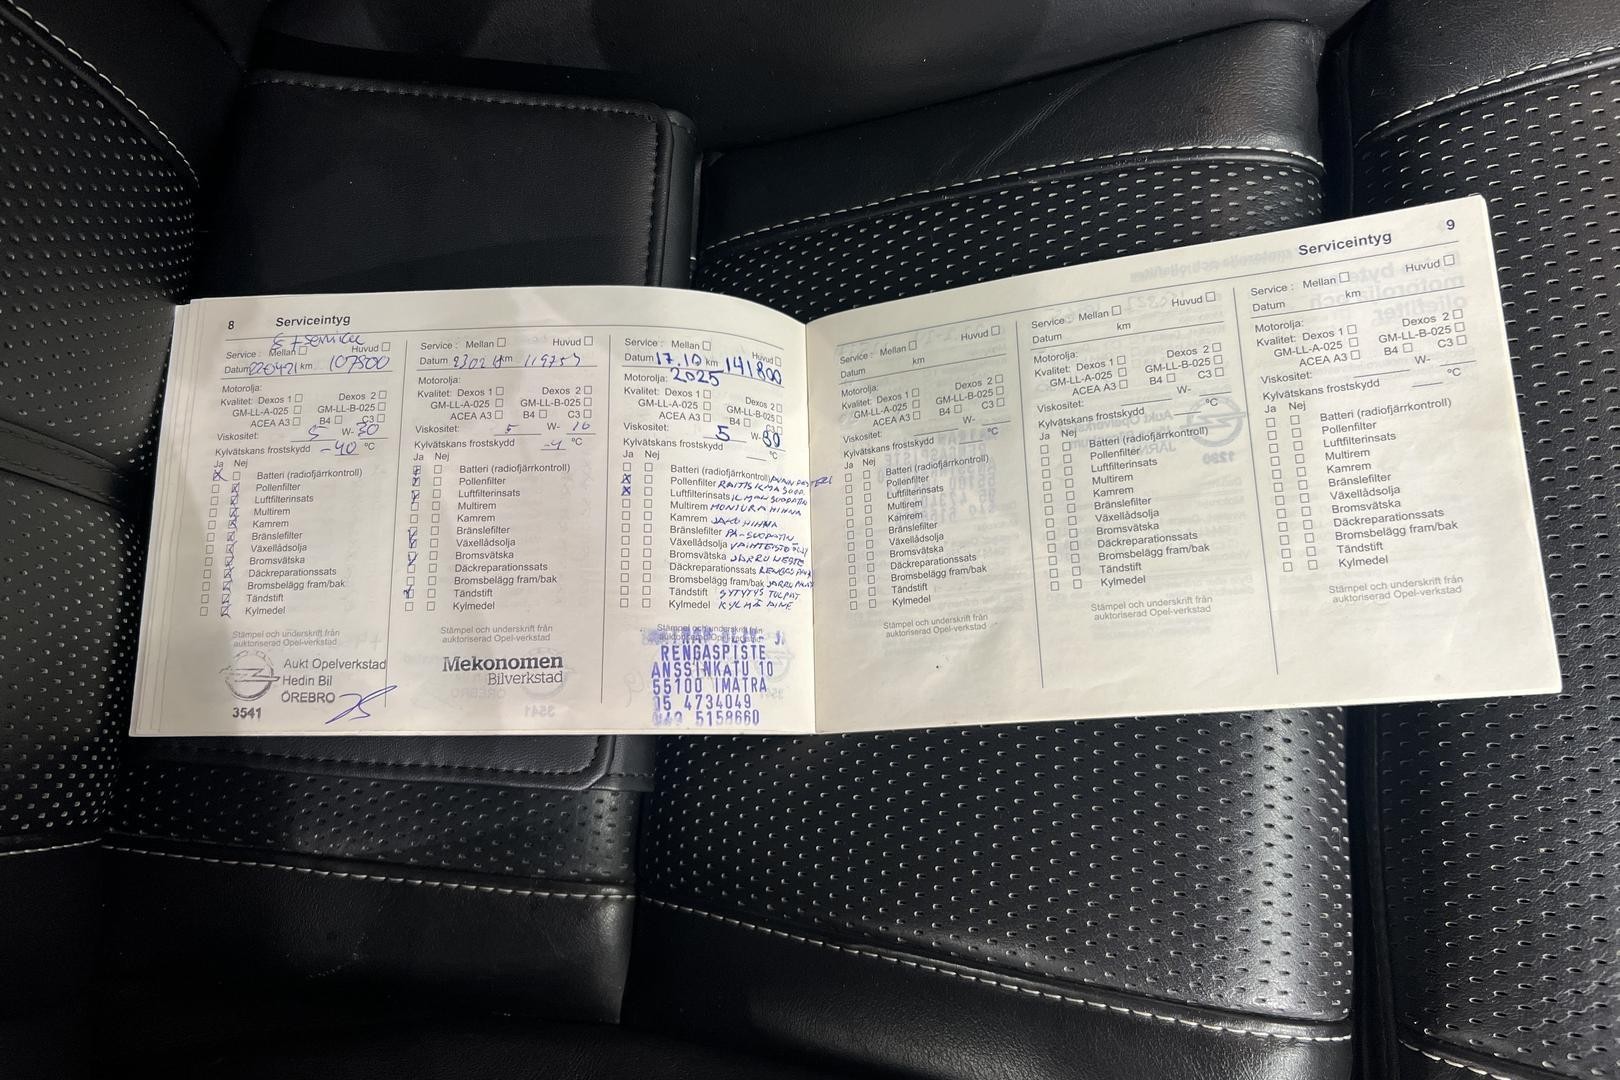 8 Serviceintyg
Service : Mellan Huvud
Datum 220421 km 107500
Motorolja:
Kvalitet: Dexos 1 Dexos 2
GM-LL-A-025 GM-LL-B-025
ACEA A3 B4 C3
Viskositet: 5 W- 30
Kylvätskans frostskydd -40 °C
Ja Nej
Batteri (radiofjärrkontroll)
Pollenfilter
Luftfilterinsats
Multirem
Kamrem
Bränslefilter
Växellådsolja
Bromsvätska
Däckreparationssats
Bromsbelägg fram/bak
Tändstift
Kylmedel
Stämpel och underskrift från
auktoriserad Opel-verkstad
Aukt Opelverkstad
Hedin Bil
ÖREBRO
3541
Service : Mellan Huvud
Datum km
Motorolja:
Kvalitet: Dexos 1 Dexos 2
GM-LL-A-025 GM-LL-B-025
ACEA A3 B4 C3
Viskositet: 5 W-
Kylvätskans frostskydd °C
Ja Nej
Batteri (radiofjärrkontroll)
Pollenfilter
Luftfilterinsats
Multirem
Kamrem
Bränslefilter
Växellådsolja
Bromsvätska
Däckreparationssats
Bromsbelägg fram/bak
Tändstift
Kylmedel
Stämpel och underskrift från
auktoriserad Opel-verkstad
Mekonomen
Bilverkstad
Service : Mellan Huvud
Datum 17.10 km 141800
2025
Motorolja:
Kvalitet: Dexos 1 Dexos 2
GM-LL-A-025 GM-LL-B-025
ACEA A3 B4 C3
Viskositet: 5 W- 30
Kylvätskans frostskydd °C
Ja Nej
Batteri (radiofjärrkontroll)
Pollenfilter RAITISILMASUOD.
Luftfilterinsats ILMANSUODATIN
Multirem MONIURAHIHNA
Kamrem JAKOHIHNA
Bränslefilter PA-SUODATIN
Växellådsolja VAIHTEISTOÖLJY
Bromsvätska JARRUNESTE
Däckreparationssats
Bromsbelägg fram/bak
Tändstift SYTYTYSTULPAT
Kylmedel KYLMÄAINE
Stämpel och underskrift från
auktoriserad Opel-verkstad
RENGASPISTE
ANSSINKATU 10
55100 IMATRA
05 4734049
040 5158660
Serviceintyg 9
Service : Mellan Huvud
Datum km
Motorolja:
Kvalitet: Dexos 1 Dexos 2
GM-LL-A-025 GM-LL-B-025
ACEA A3 B4 C3
Viskositet: W-
Kylvätskans frostskydd °C
Ja Nej
Batteri (radiofjärrkontroll)
Pollenfilter
Luftfilterinsats
Multirem
Kamrem
Bränslefilter
Växellådsolja
Bromsvätska
Däckreparationssats
Bromsbelägg fram/bak
Tändstift
Kylmedel
Stämpel och underskrift från
auktoriserad Opel-verkstad
Service : Mellan Huvud
Datum km
Motorolja:
Kvalitet: Dexos 1 Dexos 2
GM-LL-A-025 GM-LL-B-025
ACEA A3 B4 C3
Viskositet: W-
Kylvätskans frostskydd °C
Ja Nej
Batteri (radiofjärrkontroll)
Pollenfilter
Luftfilterinsats
Multirem
Kamrem
Bränslefilter
Växellådsolja
Bromsvätska
Däckreparationssats
Bromsbelägg fram/bak
Tändstift
Kylmedel
Stämpel och underskrift från
auktoriserad Opel-verkstad
Service : Mellan Huvud
Datum km
Motorolja:
Kvalitet: Dexos 1 Dexos 2
GM-LL-A-025 GM-LL-B-025
ACEA A3 B4 C3
Viskositet: W-
Kylvätskans frostskydd °C
Ja Nej
Batteri (radiofjärrkontroll)
Pollenfilter
Luftfilterinsats
Multirem
Kamrem
Bränslefilter
Växellådsolja
Bromsvätska
Däckreparationssats
Bromsbelägg fram/bak
Tändstift
Kylmedel
Stämpel och underskrift från
auktoriserad Opel-verkstad